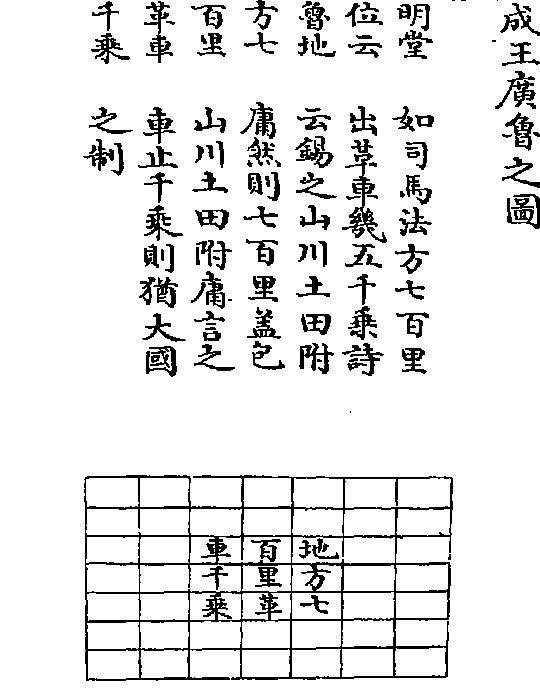 成王廣魯之圖
明堂
位云
魯地
方七
百里
革車
千乘
如司馬法方七百里
出革車幾五千乘詩
云錫之山川土田附
庸然則七百里盖包
山川土田附庸言之
車止千乘則猶大國
之制
地方七
百里革
車千乘